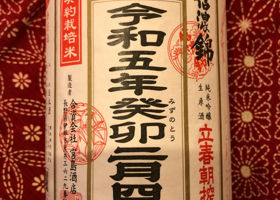 錦
純米吟醸
生原酒
立春朝搾
令和五年癸卯二月四
みずのとう
契約栽培米
製造者
合資会社宮島酒店